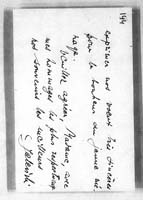 144
exprimer nos voeux très sincères
pour le bonheur du jeune mé-
nage.
Veuillez agréer, Madame, avec
mes hommages les plus respectueux
nos souvenirs les meilleurs